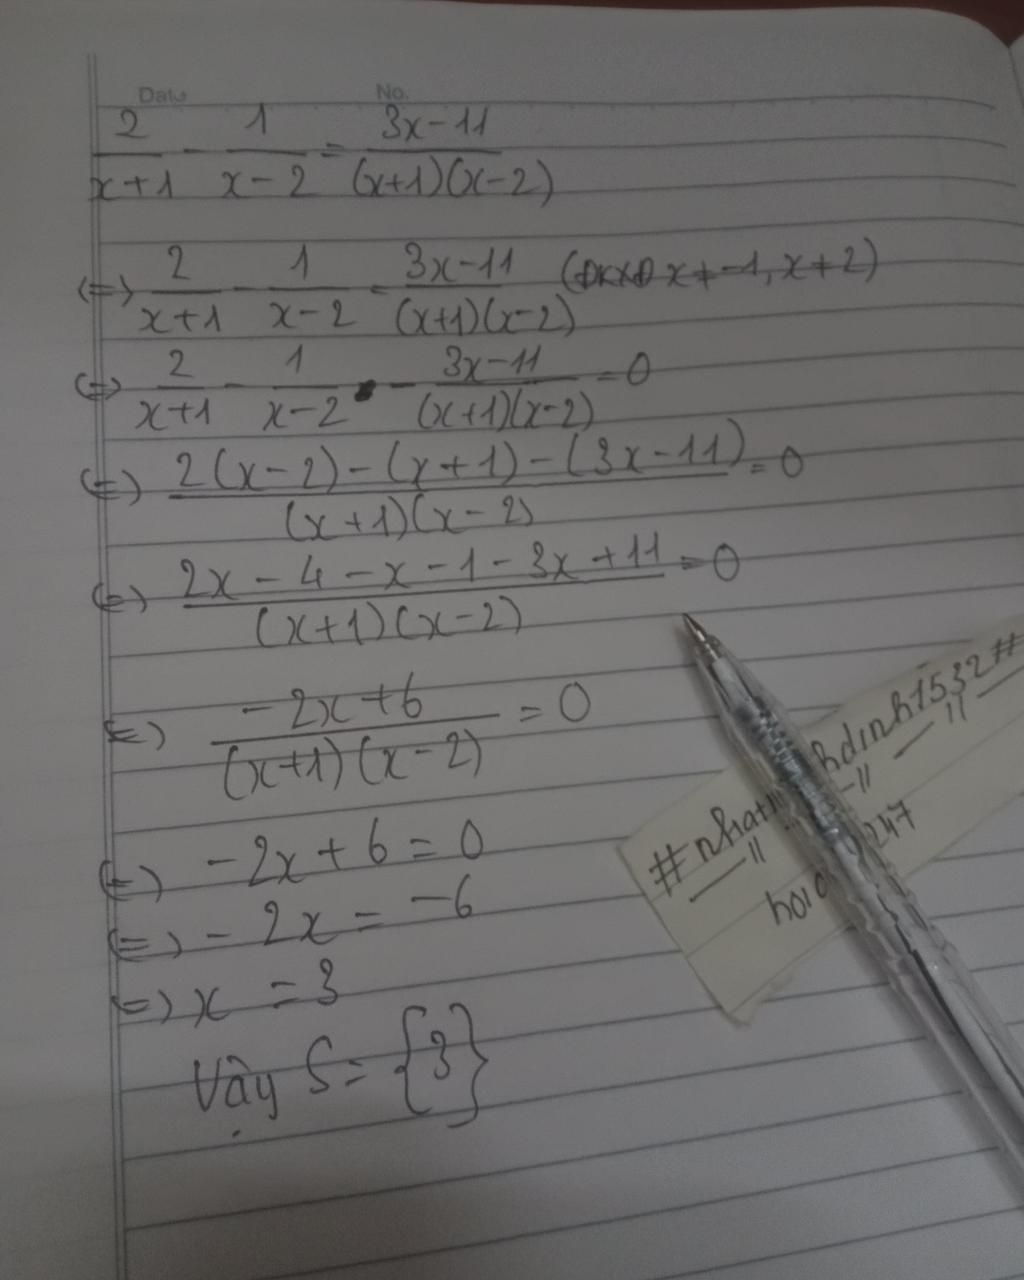 Date No.
2/(x+1) - 1/(x-2) = (3x-11)/((x+1)(x-2))
(=) 2/(x+1) - 1/(x-2) = (3x-11)/((x+1)(x-2)) (ĐKXĐ x ≠ -1, x ≠ 2)
(=) 2/(x+1) - 1/(x-2) - (3x-11)/((x+1)(x-2)) = 0
(=) (2(x-2) - (x+1) - (3x-11))/((x+1)(x-2)) = 0
(=) (2x - 4 - x - 1 - 3x + 11)/((x+1)(x-2)) = 0
(=) (-2x+6)/((x+1)(x-2)) = 0
(=) -2x + 6 = 0
(=) -2x = -6
(=) x = 3
Vậy S = {3}